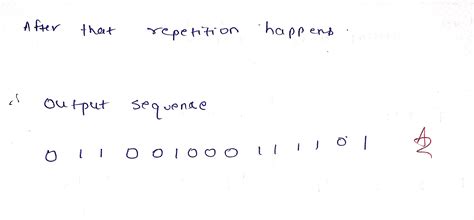 After that repetition happens.
∴ Output sequence
0 1 1 0 0 1 0 0 0 1 1 1 1 0 1